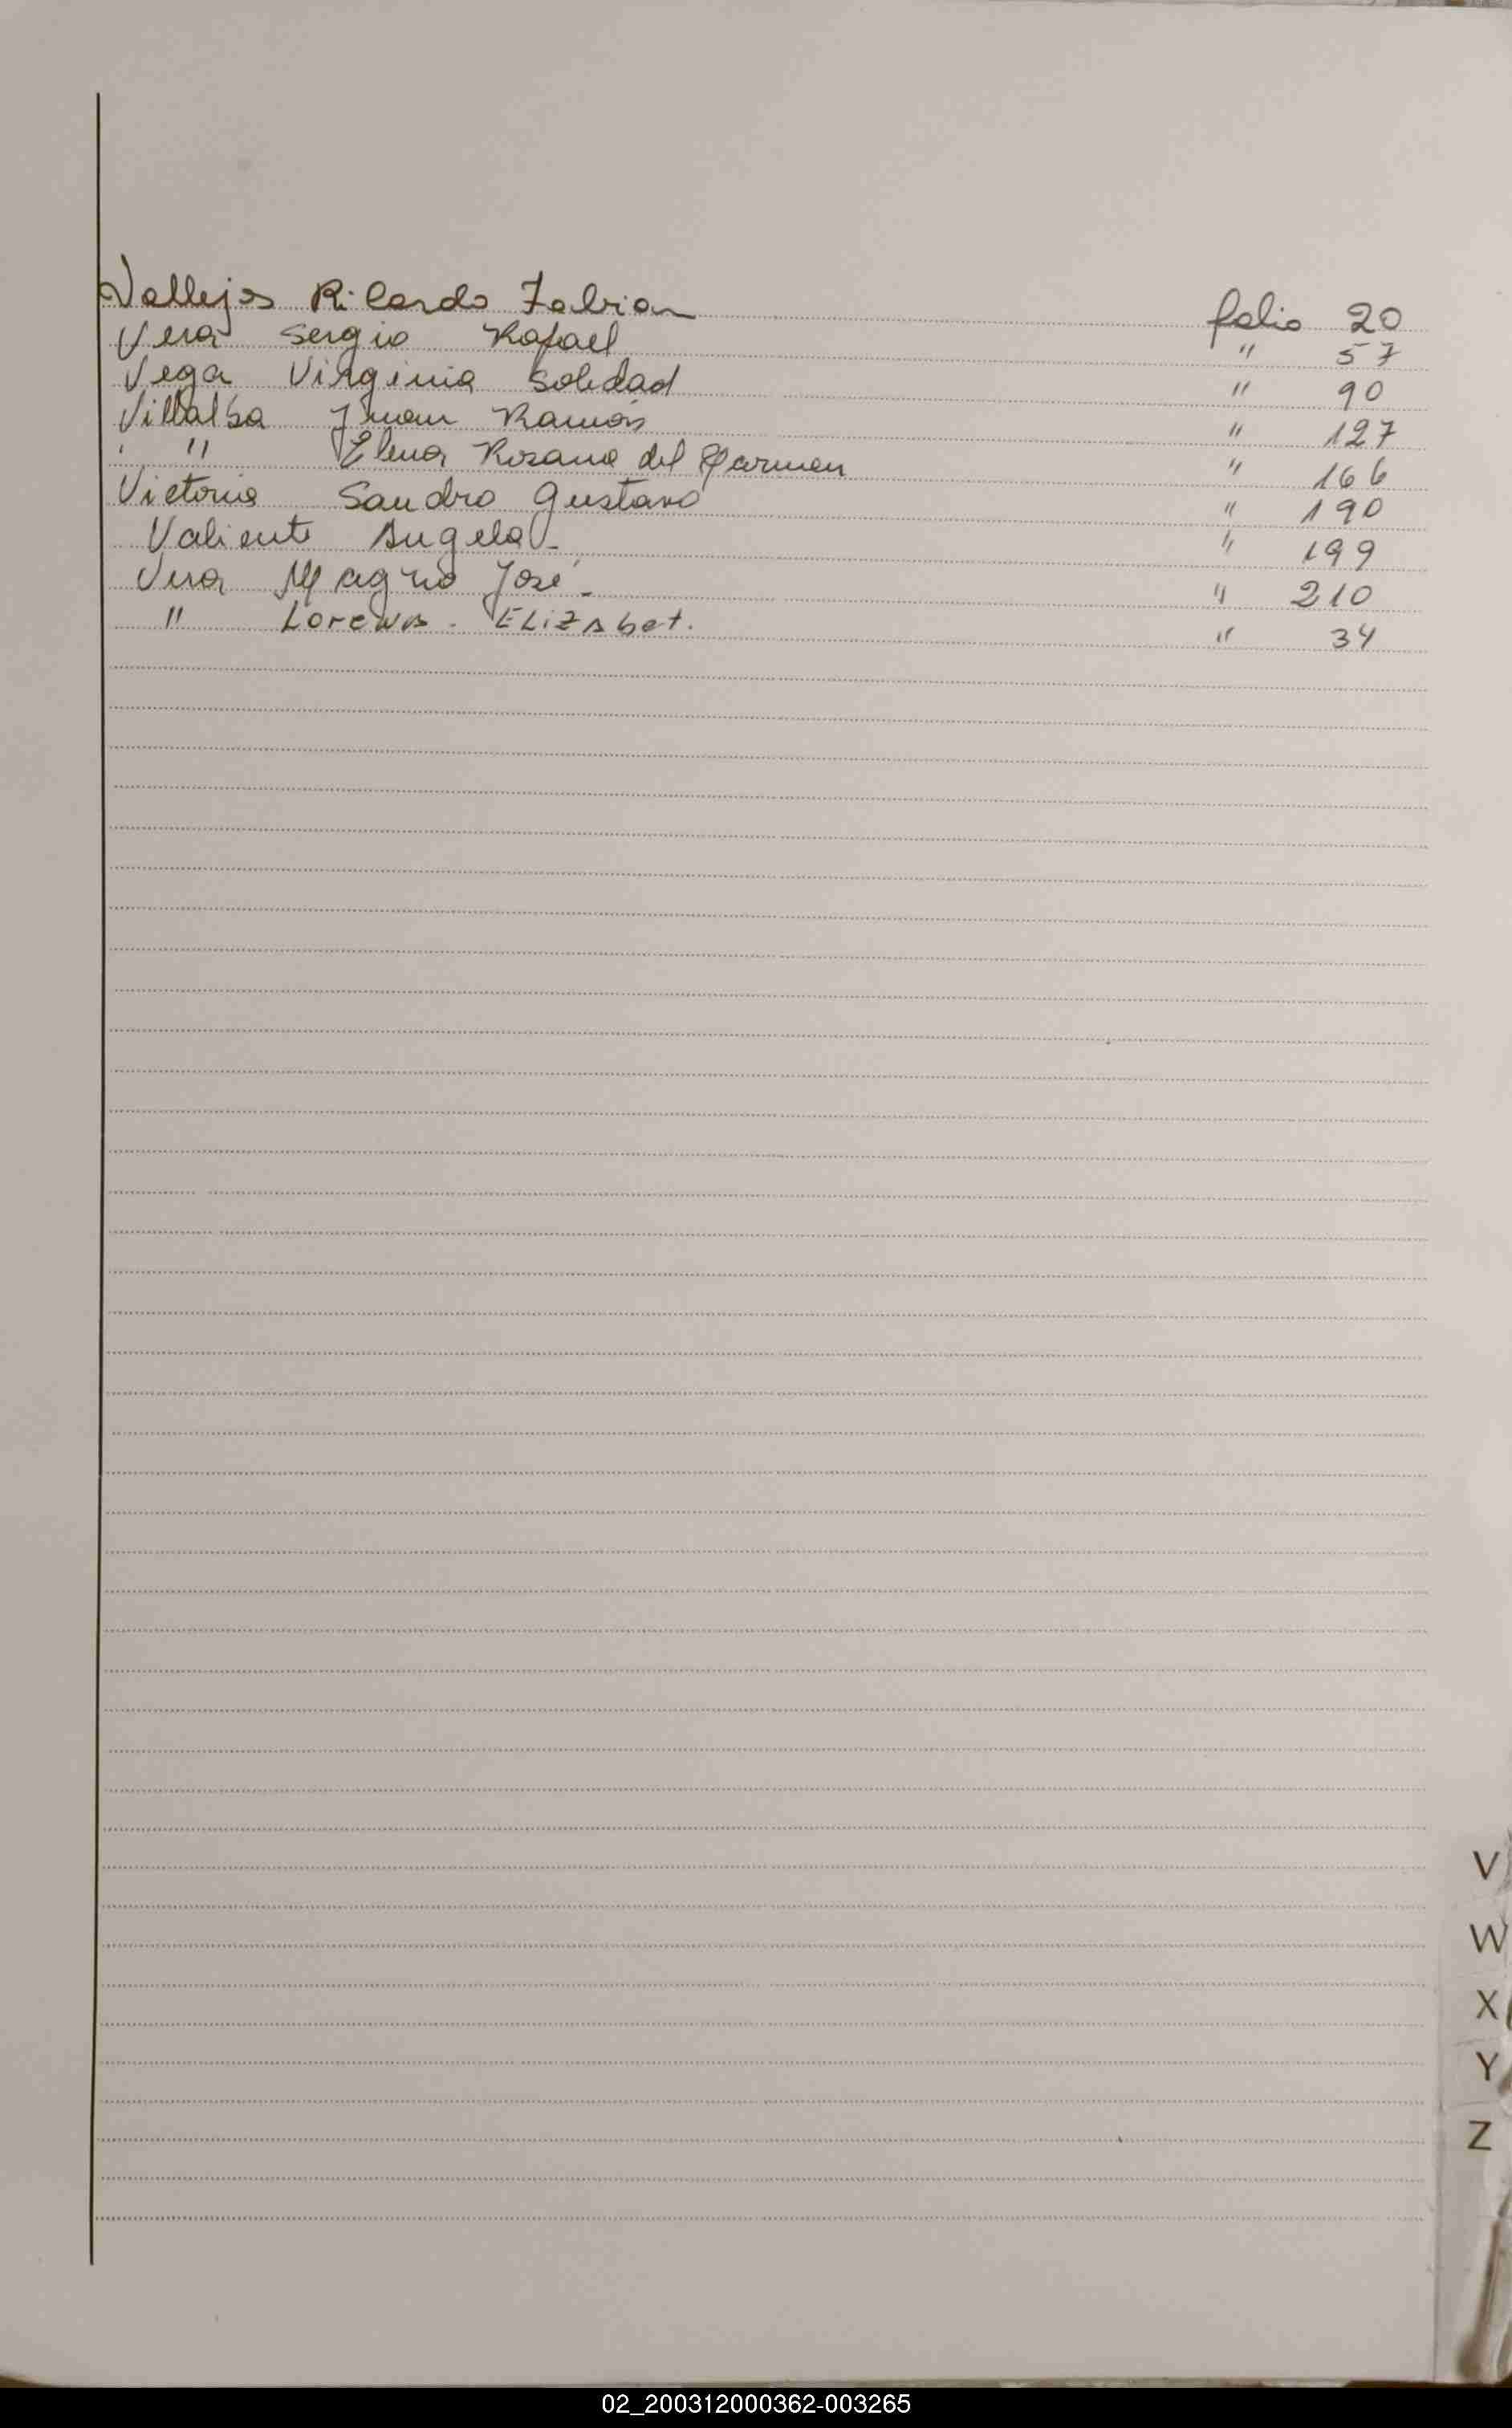 Vallejos Ricardo Fabian folio 20
Vera Sergio Rafael " 57
Vega Virginia Soledad " 90
Villalba Juan Ramón " 127
" Elena Rosana del Carmen " 166
Victoria Sandro Gustavo " 190
Valiente Angela - " 199
Vera Magno José - " 210
" Lorena - Elizabet. " 34
V
W
X
Y
Z
02_200312000362-003265